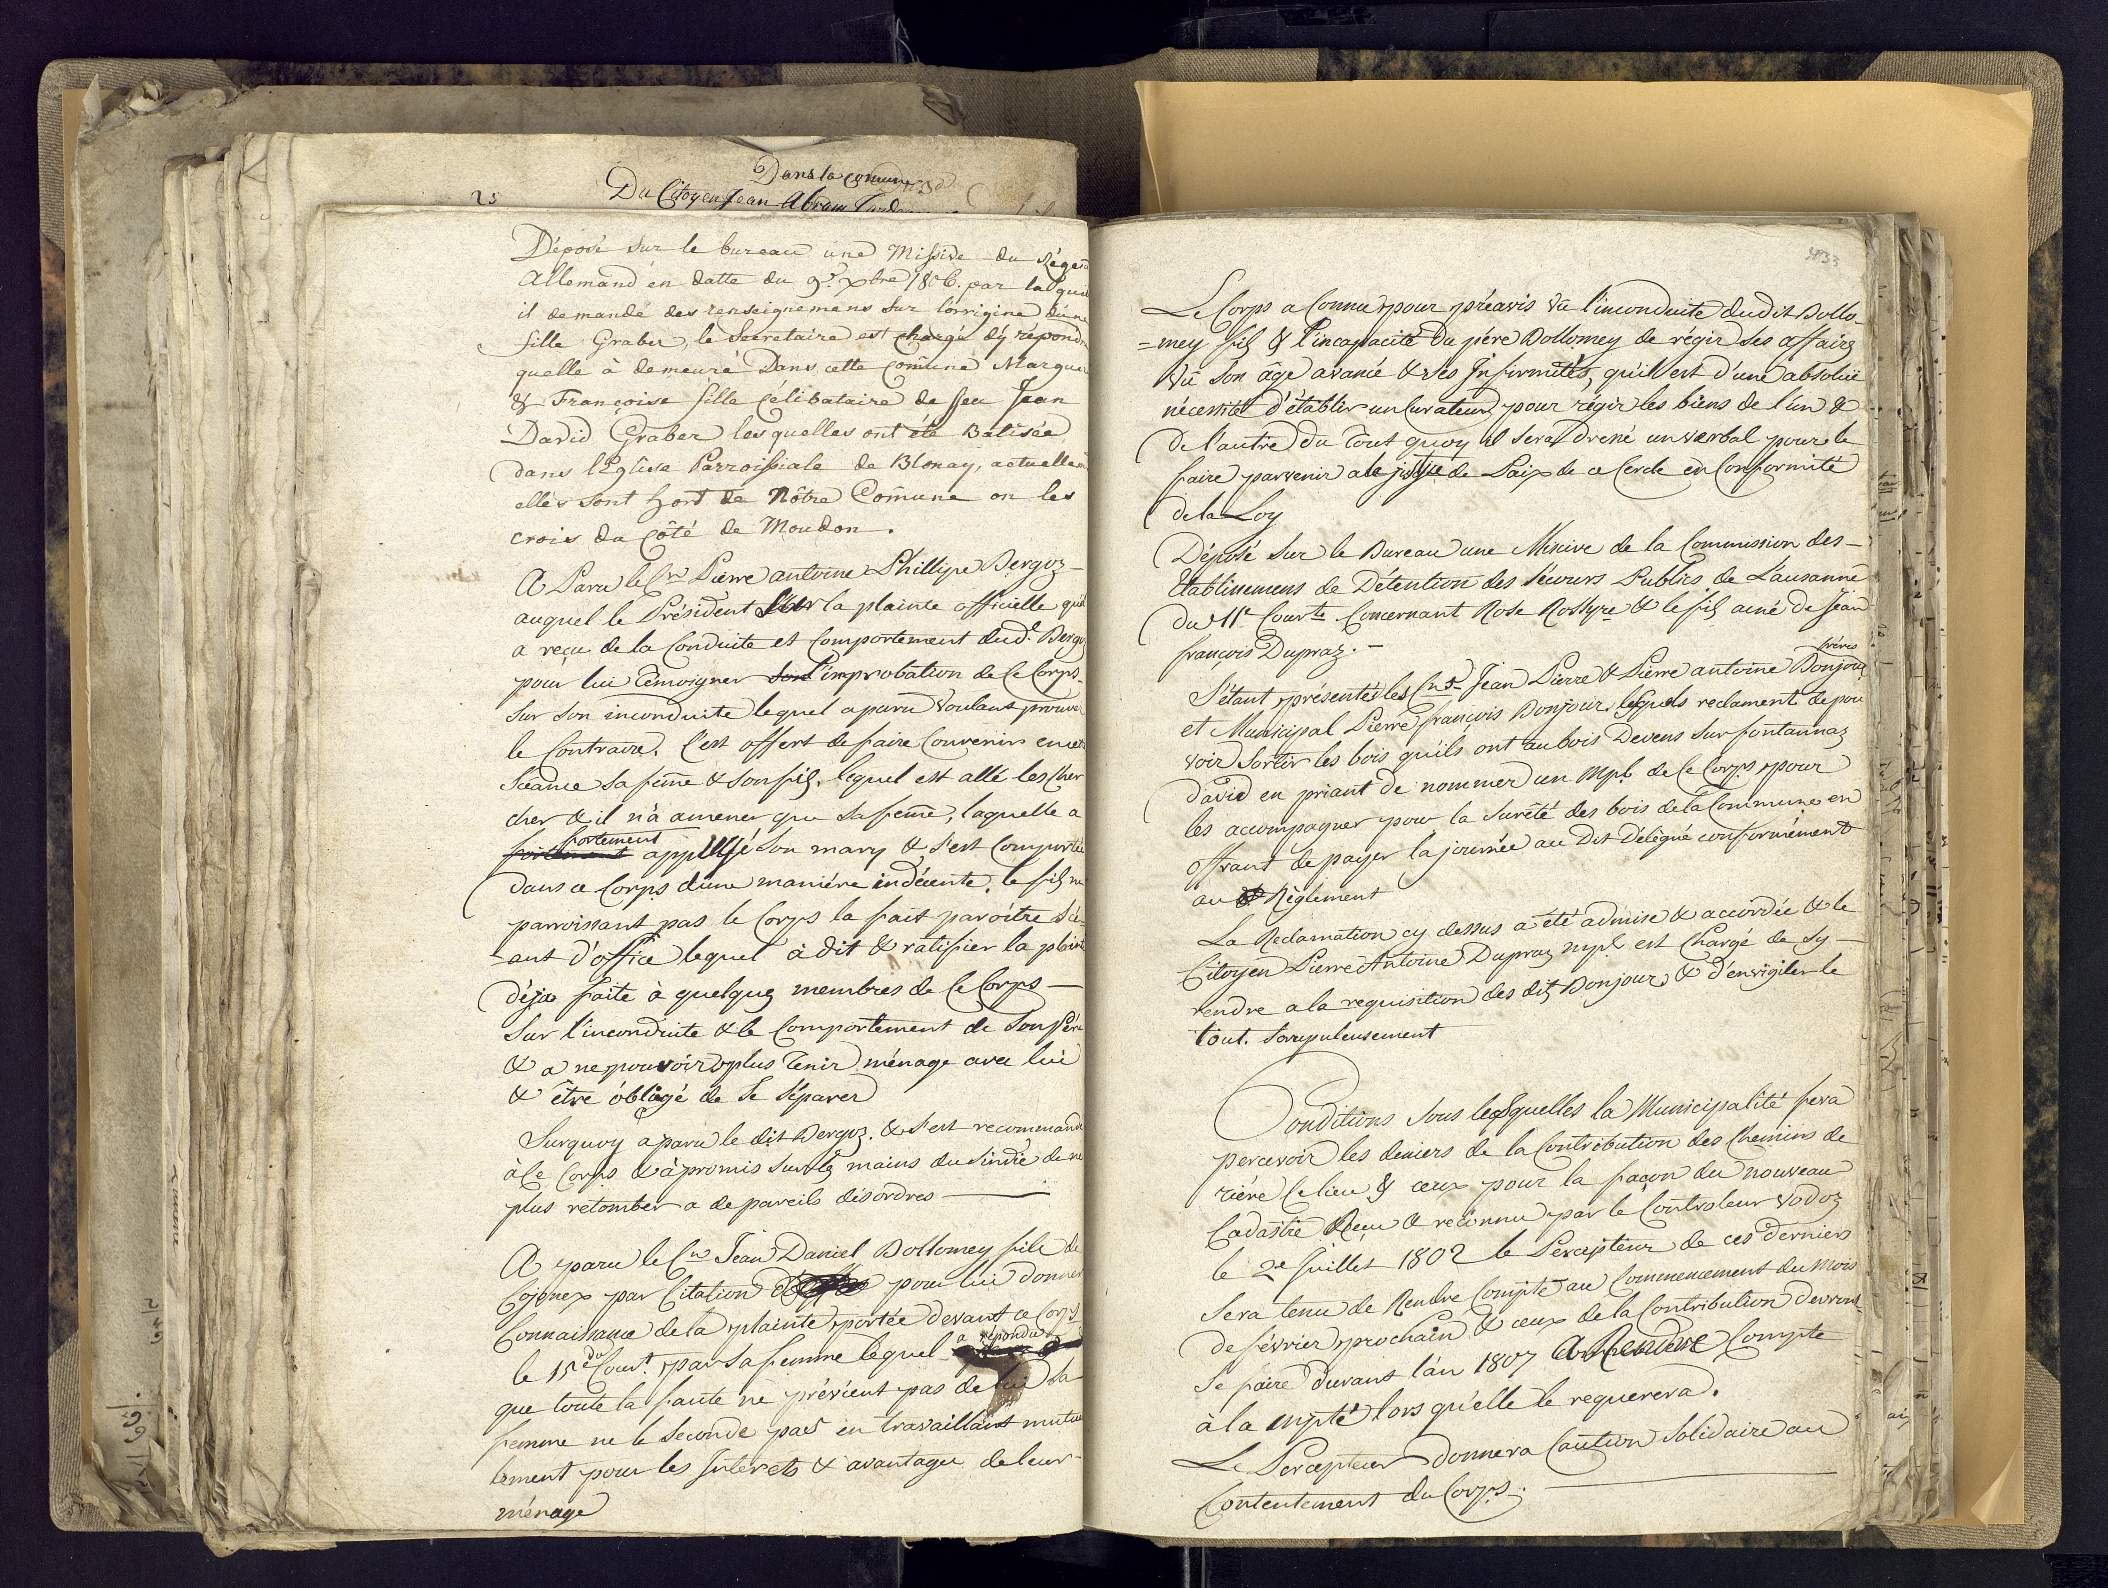 Dans la comune
25
Du Citoyen Jean Abram
Déposé sur le bureau une Missive du Régent
Allemand en datte du 9e. xbre 1806. par laquel
il demande des renseignemens sur lorrigine dune
fille Graber, le Secretaire est chargé d'y répondre
quelle à demeuré Dans cette Comune Margue
& Françoise fille Célibataire de feu Jean
David Graber lesquelles ont été Batisée
dans l'Eglise Parroissiale de Blonay, actuellem
elles sont hord de Nôtre Comune on les
crois du Côté de Moudon.
A Paru le Cn Pierre antoine Phillipe Bergoz
auquel le Président la plainte officielle qu'il
a reçu de la Conduite et Comportement dud.t Bergoz
pour lui témoigner son l'improbation de Ce Corps
Sur Son inconduite lequel a paru Voulant prouver
le Contraire. C'est offert de faire Convenir en cet
Séance sa feme & son fils, lequel est allé les cher
cher & il n'à amener que sa feme, laquelle a
fortement
fortement son mary & s'est Comportée
dans ce Corps d'une maniére indécente. le fils ne
parroissant pas le Corps la fait paroître Sé-
ant d'office lequel à dit & ratifier la plainte
déja faite à quelques membres de Ce Corps
Sur l'inconduite & le Comportement de Son Pére
& a ne pouvoir plus tenir ménage avec lui
& être obligé de Se Séparer
Surquoy a paru le dit Bergoz. & s'est recommandé
à Ce Corps & à promis Sur les mains du Sindic de ne
plus retomber a de pareils désordres
A paru le Cn Jean Daniel Dollomey fils de
Cojonex par Citation pour lui donner
Connaissance de la plainte portée devant ce Corps
le 15e du Court par sa femme lequel a répondu
que toute la faute ne prévient pas de lui sa
femme ne le Seconde pas en travaillant mutuel
lement pour les Interets & avantages de leur
ménage
433
Le Corps a Connu pour préavis Vû l'inconduite dudit Dollo-
=mey fils & l'incapacité du pére Dollomey de régir Ses affaires
Vû Son âge avancé & Ses Infirmités, qu'il est d'une absolüe
nécessité d'établir un Curateur pour régir les biens de l'un &
de l'autre du tout quoy il Sera dressé un verbal pour le
faire parvenir a la justice de Paix de ce Cercle en Conformité
de la Loy
Déposé Sur le Bureau une Missive de la Commission des
Etablissemens de Détention des Sécours Publics de Lausanne
du 11e Court Concernant Rose Rossyre & le fils ainé de Jean
françois Dupraz.
fréres
S'étant présentés les Cns Jean Pierre & Pierre antoine Bonjour
et Municipal Pierre françois Bonjour, lesquels reclament de pou
voir Sortir les bois qu'ils ont au bois Devens Sur fontannaz
david en priant de nommer un Mpl. de Ce Corps pour
les accompagner pour la Sureté des bois de la Commune en
offrant de payer la journée au dit Délégué conformément
au Réglement
La Reclamation cy dessus a été admise & accordée & le
Citoyen Pierre Antoine Dupraz mpl est Chargé de Sy
rendre a la requisition des dits Bonjour, & d'envigiler le
tout. Scrupuleusement
Conditions Sous lesquelles la Municipalité fera
percevoir les deniers de la Contribution des Chemins de
riére Ce lieu & ceux pour la façon du nouveau
Cadastre Reçu & reconnu par le Controleur Vodoz
le 2e Juillet 1802 le Percepteur de ces derniers
Sera tenu de Rendre Compte au Commencement du mois
de février prochain & ceux de la Contribution devront
Se faire Durant l'an 1807 & Rendre Compte
à la mpté lors qu'elle le requerera.
Le Percepteur donnera Caution Solidaire au
Contentement du Corps.